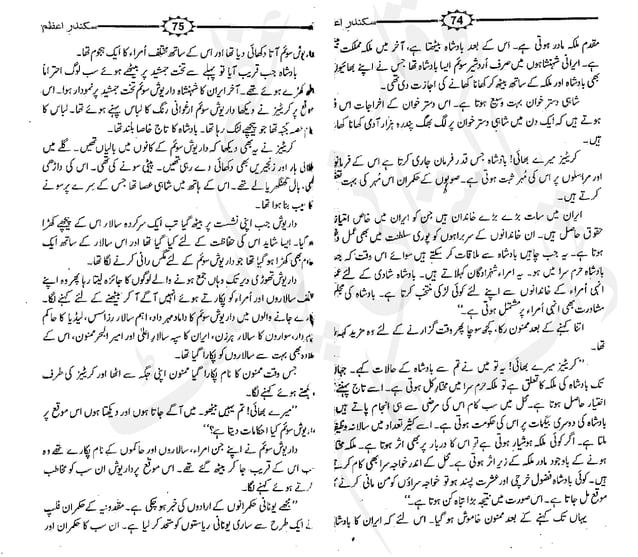 سکندرِ اعظم 74
مقدم ملکہ مادر ہوتی ہے۔ اس کے بعد بادشاہ بیٹھتا ہے، آخر میں ملکہ مملکت
ایرانی شہنشاہوں میں صرف اُردشیر سوئم ایسا بادشاہ تھا جس نے اپنے بھائیوں
بھی بادشاہ اور ملکہ کے ساتھ بیٹھ کر کھانا کھانے کی اجازت دی تھی۔
شاہی دسترخوان بہت وسیع ہوتا ہے۔ اس دسترخوان کے اخراجات اس
ہوتے ہیں کہ ایک دن میں شاہی دسترخوان پر لگ بھگ پندرہ ہزار آدمی کھانا کھا
ہیں۔
کریٹیز میرے بھائی! بادشاہ جس قدر فرمان جاری کرتا ہے اس کے فرمانو
اور مراسلوں پر اس کی مُہر ثبت ہوتی ہے۔ صوبوں کے حکمران اس مُہر کی بہت
کرتے ہیں۔
ایران میں سات بڑے بڑے خاندان ہیں جن کو ایران میں خاص امتیاز
حقوق حاصل ہیں۔ ان خاندانوں کے سربراہوں کو پوری سلطنت میں بھی عمل
ہوتا ہے۔ یہ جب چاہیں بادشاہ سے ملاقات کر سکتے ہیں سوائے اس وقت کہ
بادشاہ حرم سرا میں ہو۔ یہ امراء شہزادگان کہلاتے ہیں۔ بادشاہ شادی کے لئے
انہی اُمراء کے خاندانوں سے اپنے لئے کوئی لڑکی منتخب کرتا ہے۔ بادشاہ کی مجلس
مشاورت بھی انہی اُمراء پر مشتمل ہوتی ہے۔"
اتنا کہنے کے بعد ممنون رکا، کچھ سوچا پھر وقت گزارنے کے لئے وہ مزید کہہ
تھا۔
"کریٹیز میرے بھائی! یہ تو میں نے تم سے بادشاہ کے حالات کہے۔ جہاں
تک بادشاہ کی ملکہ کا تعلق ہے تو ملکہ حرم سرا میں مختارِ کل ہوتی ہے۔ اسے تاج پہننے
اختیار حاصل ہوتا ہے۔ محل میں سب کام اس کی مرضی سے ہی انجام پاتے ہیں
بادشاہ کی دوسری بیگمات پر اس کی حکومت ہوتی ہے۔ اسے کثیر تعداد میں سالانہ وظیفہ
ملتا ہے۔ اگر کوئی ملکہ ہوشیار ہوتی ہے تو اس کا دربار پر بھی اثر ہوتا ہے۔ ملکہ مختار
ہونے کے باوجود مادر ملکہ کے زیرِ اثر ہوتی ہے۔ محل کے اندر خواجہ سرا بھی کام کرتے
ہیں۔ کوئی بادشاہ فضول خرچی اور عشرت پسند ہو تو خواجہ سراؤں کو من مانی کرنے
موقع مل جاتا ہے۔ اس صورت میں نتیجہ بڑا تباہ کن ہوتا ہے۔"
یہاں تک کہنے کے بعد ممنون خاموش ہو گیا۔ اس لئے کہ ایران کا بادشاہ
سکندرِ اعظم 75
داریوش سوئم آتا دکھائی دیا تھا اور اس کے ساتھ مختلف اُمراء کا ایک ہجوم تھا۔
بادشاہ جب قریب آیا تو پہلے سے تخت جمشید پر بیٹھے ہوئے سب لوگ احتراماً
کھڑے ہوئے تھے۔ آخر ایران کا شہنشاہ داریوش سوئم تخت جمشید پر نمودار ہوا۔ اس
موقع پر کریٹیز نے دیکھا داریوش سوئم ارغوانی رنگ کا لباس پہنے ہوئے تھا۔ لباس کا
حصہ جبّہ تھا جو پیچھے لٹک رہا تھا۔ بادشاہ کا تاج خاصا بلند تھا۔
کریٹیز نے یہ بھی دیکھا کہ داریوش سوئم کے کانوں میں بالیاں تھیں۔ گلے میں
طلائی ہار اور زنجیریں بھی دکھائی دے رہی تھیں۔ پیٹی سونے کی تھی۔ اس کی داڑھی
لمبی، بال گھنگریالے تھے۔ اس کے ہاتھ میں شاہی عصا تھا جس کے سرے پر سونے
کا سیب بنا ہوا تھا۔
داریوش جب اپنی نشست پر بیٹھ گیا تب ایک سرکردہ سالار اس کے پیچھے کھڑا
ہو گیا۔ ایسا شاید اس کی حفاظت کے لئے کیا گیا تھا اور اس سالار کے ساتھ ایک
بھی کھڑا ہو گیا تھا جو داریوش سوئم کے لئے مگس رانی کرنے لگا تھا۔
داریوش تھوڑی دیر تک وہاں جمع ہونے والے لوگوں کا جائزہ لیتا رہا پھر وہ اپنے
سالاروں اور امراء کو پکارتے ہوئے انہیں آگے آ کر بیٹھنے کے لئے کہنے لگا۔
پکارے جانے والوں میں داریوش سوئم کا داماد مہرداد، اہم سالار رزاسس، لیڈیا کا حاکم
سپہردار، سواروں کا سالار ہرزن، ایران کا سپہ سالارِ اعلیٰ اور امیر البحر ممنون، اس کے
علاوہ بھی بہت سے سالاروں کو پکارا گیا تھا۔
جس وقت ممنون کا نام پکارا گیا ممنون اپنی جگہ سے اٹھا اور کریٹیز کی طرف
دیکھتے ہوئے کہنے لگا۔
"میرے بھائی! تم یہیں بیٹھو۔ میں آگے جاتا ہوں اور دیکھتا ہوں اس موقع پر
داریوش سوئم کیا احکامات دیتا ہے؟"
داریوش سوئم نے اپنے جن امراء، سالاروں اور حاکموں کے نام پکارے تھے وہ
سب اس کے قریب جا کر بیٹھ گئے تھے۔ اس موقع پر داریوش ان سب کو مخاطب
کرتے ہوئے کہنے لگا۔
"مجھے یونانی حکمرانوں کے ارادوں کی خبر ہو چکی ہے۔ مقدونیہ کے حکمران فلپ
نے ایک طرح سے ساری یونانی ریاستوں کو متحد کر لیا ہے۔ ان سب کا حکمران اور